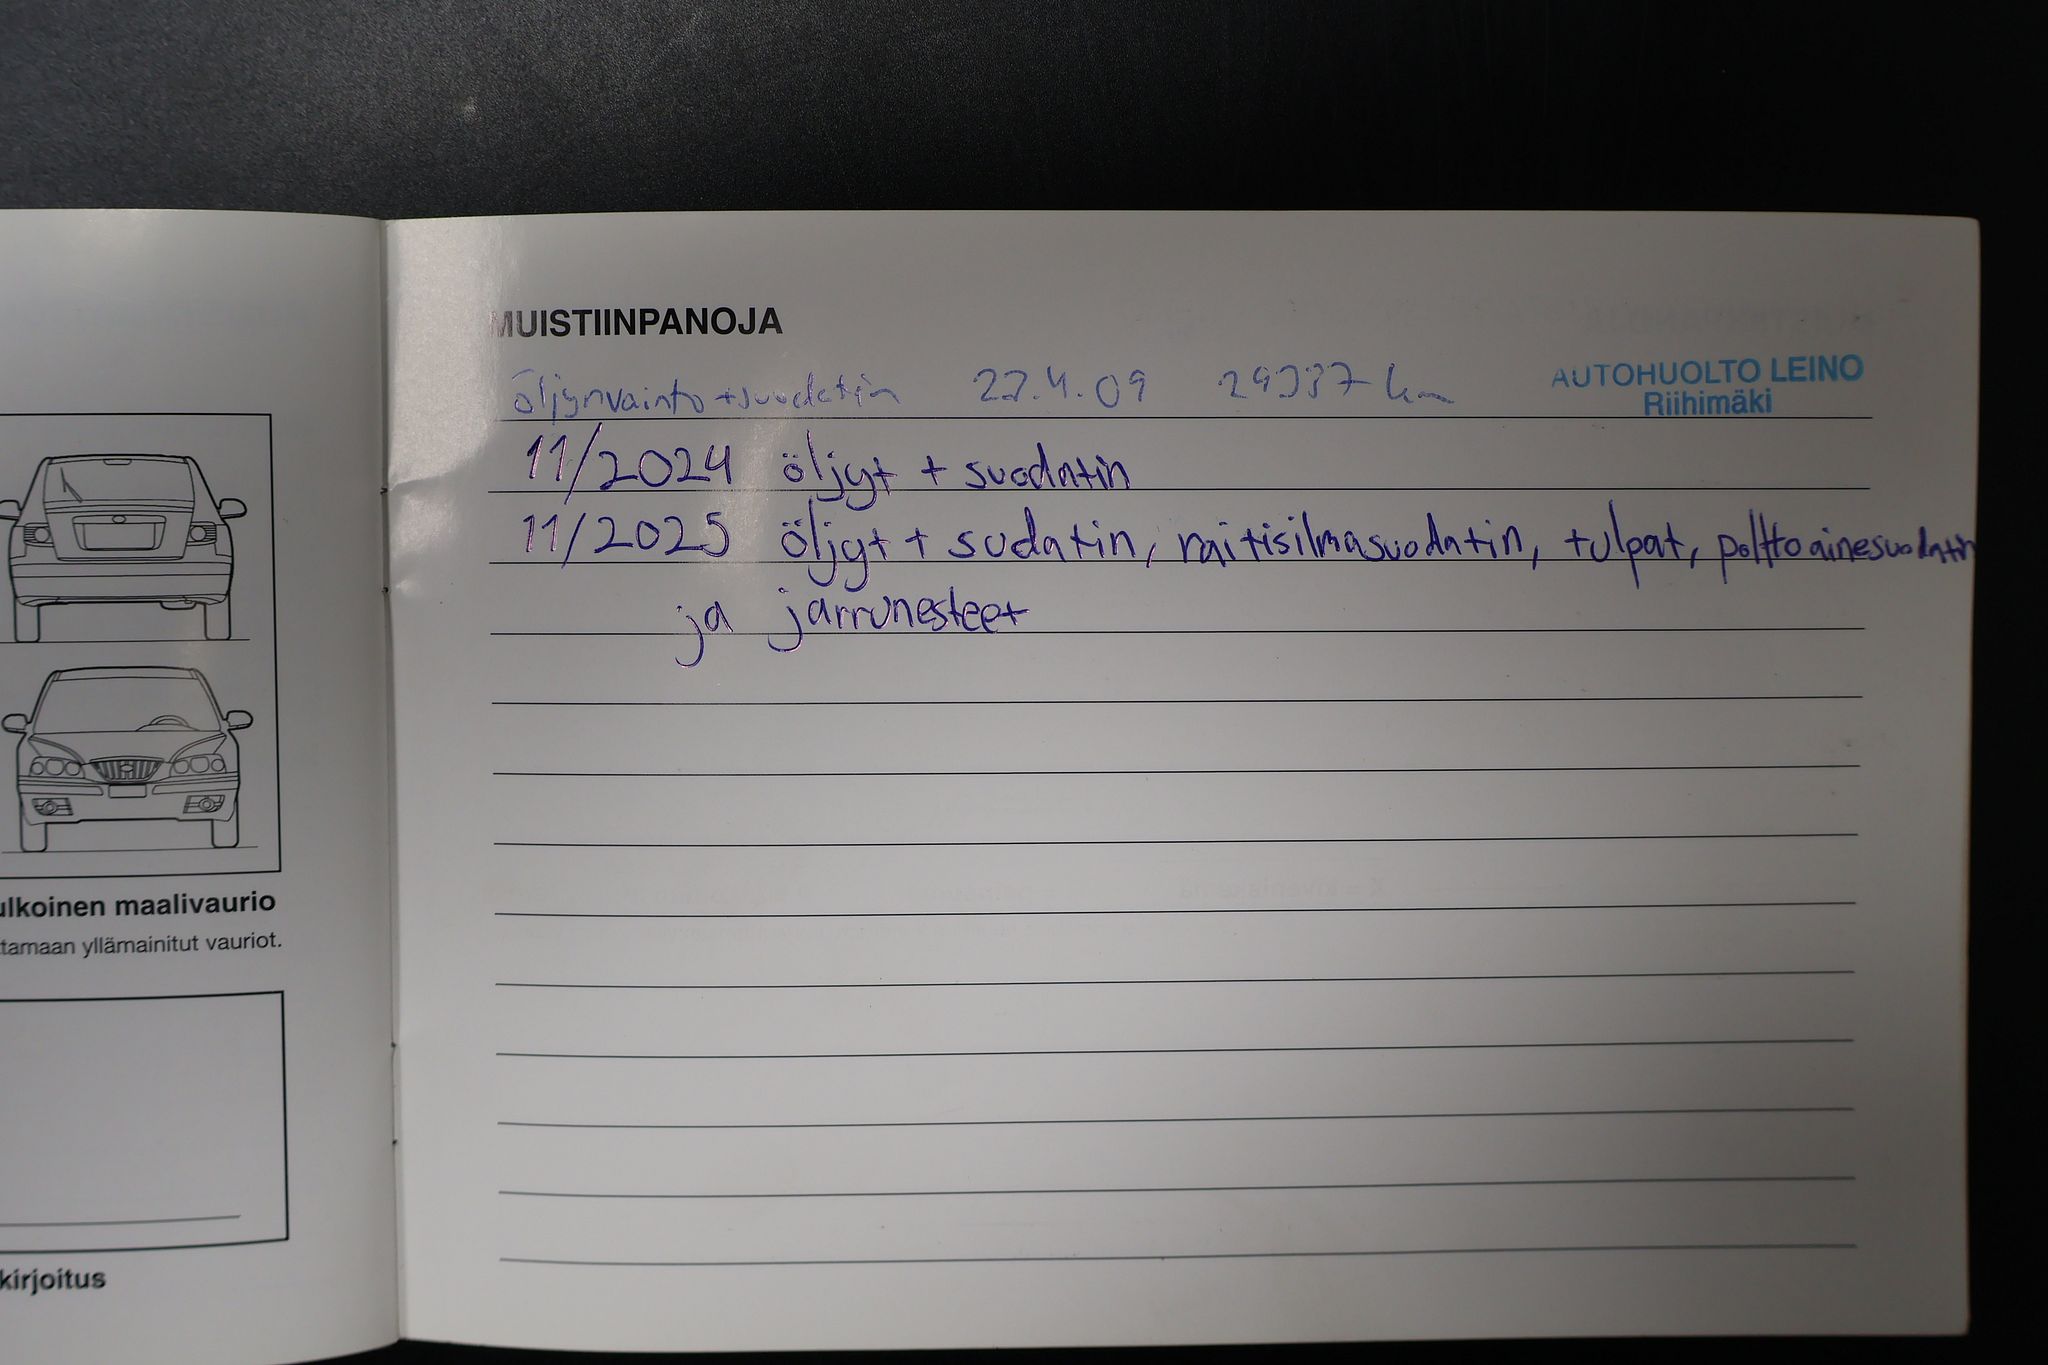 MUISTIINPANOJA
öljynvainto + suodatin 22.4.09 29337 km
AUTOHUOLTO LEINO
Riihimäki
11/2024 öljyt + suodatin
11/2025 öljyt + sudatin, raitisilmasuodatin, tulpat, polttoainesuodatin
ja jarrunesteet
ulkoinen maalivaurio
ttamaan yllämainitut vauriot.
kirjoitus